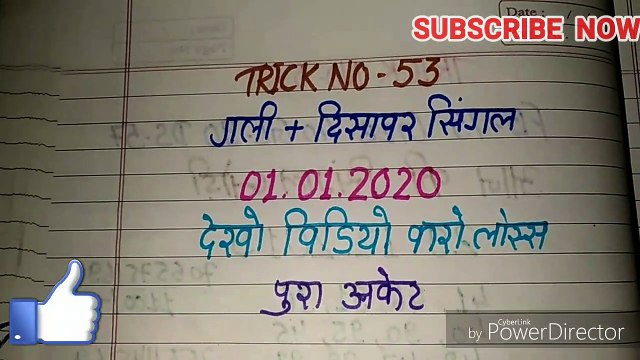 SUBSCRIBE NOW
Date :
TRICK NO - 53
गली + दिसावर सिंगल
01.01.2020
देखो विडियो करो लोस्स
पुरा अकेट
CyberLink
by PowerDirector